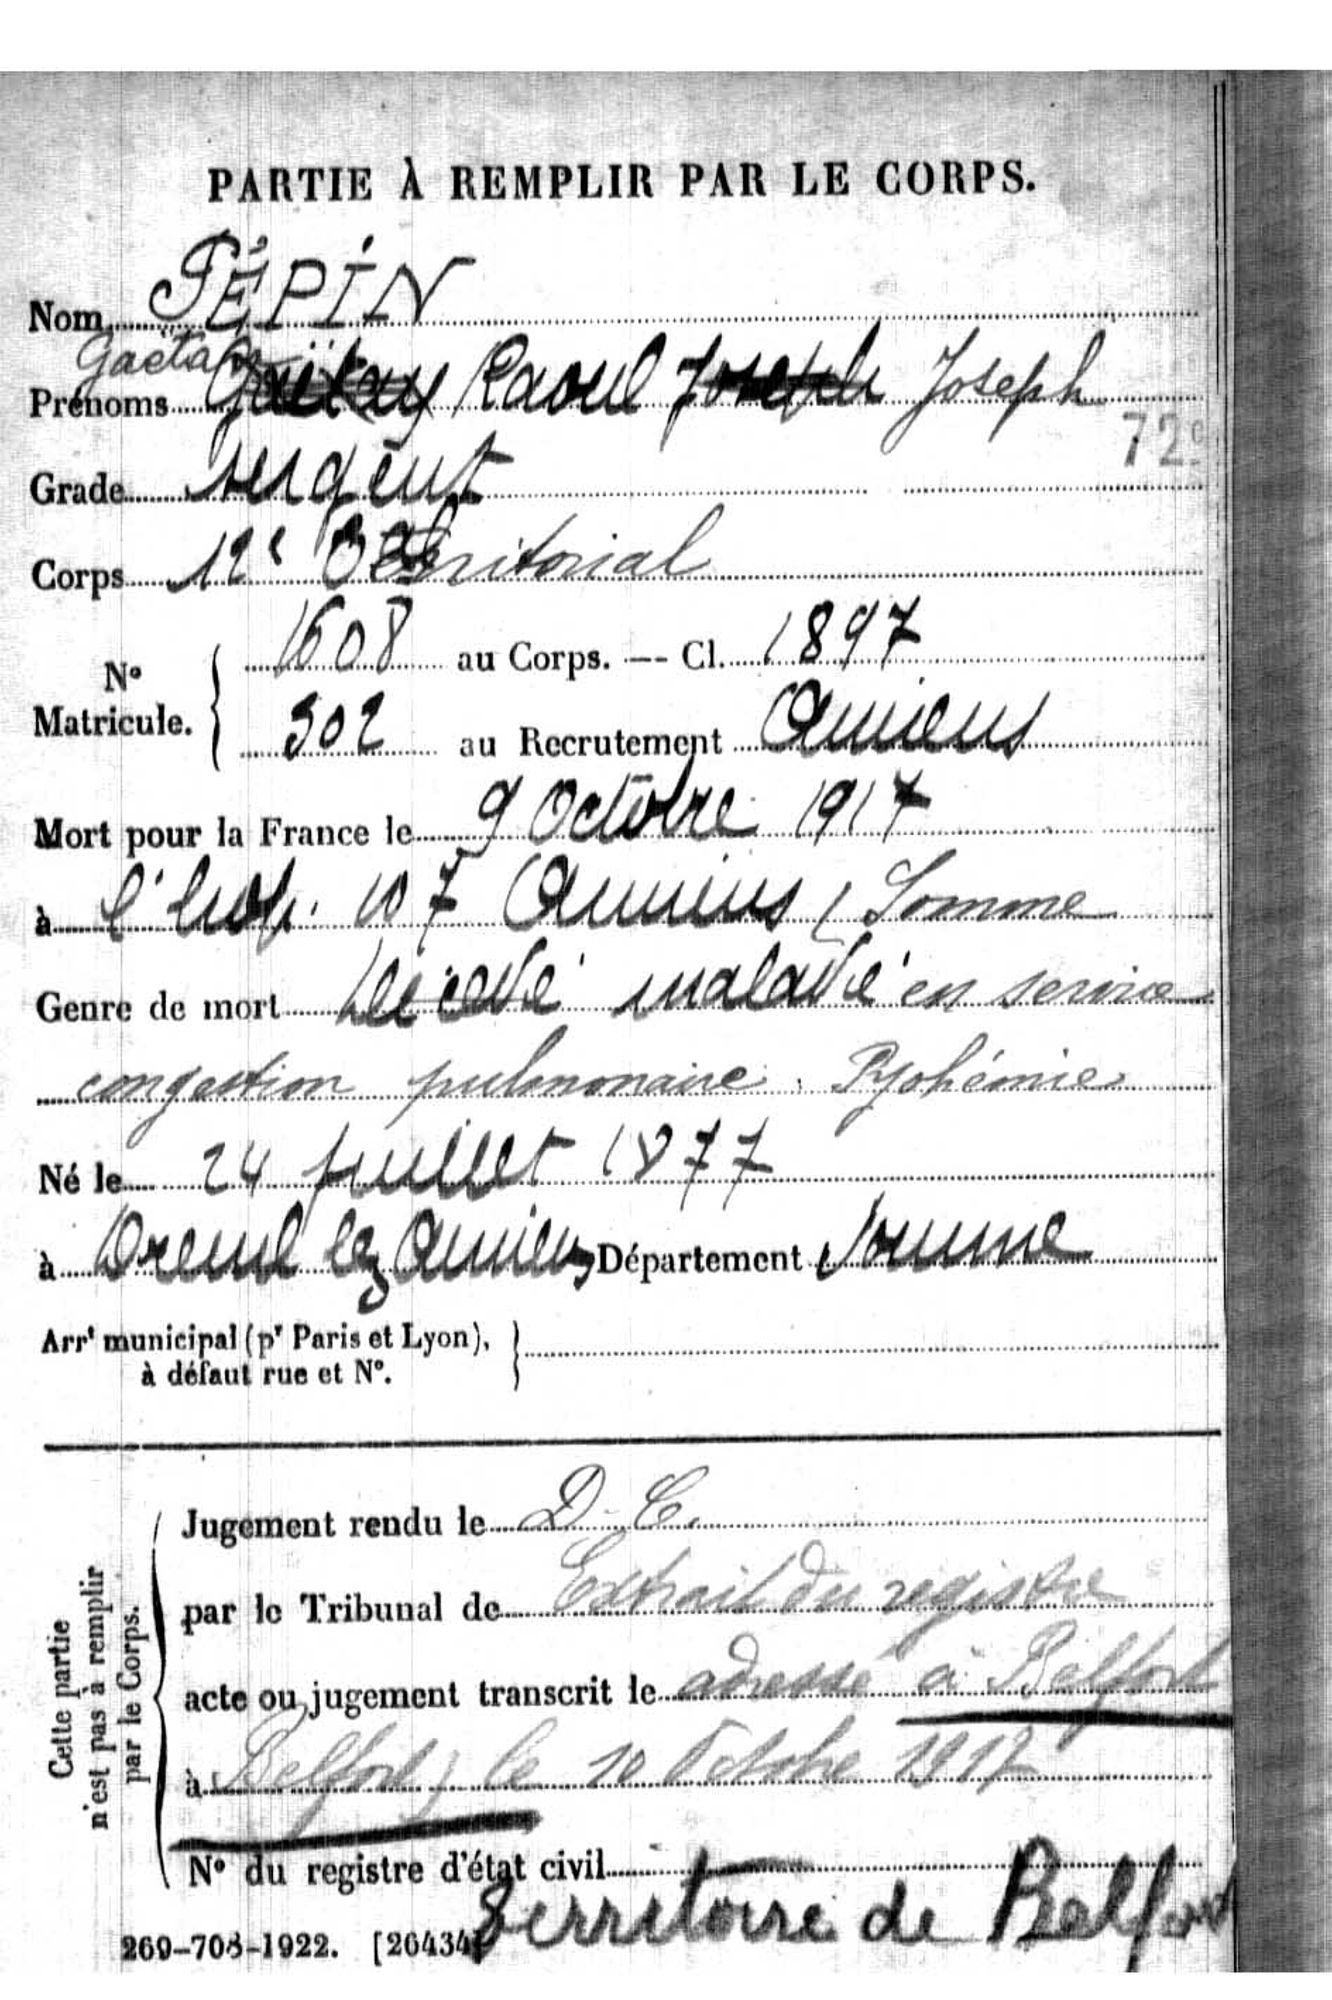 PARTIE À REMPLIR PAR LE CORPS.
Nom PÉPIN
Gaëtan
Prénoms Raoul Joseph Joseph
72e
Grade sergent
Corps 12e territorial
No Matricule. 1608 au Corps. — Cl. 1897
302 au Recrutement Amiens
Mort pour la France le 9 Octobre 1917
à l'hop. 107 Amiens, Somme
Genre de mort Décédé maladie en service
congestion pulmonaire. Pyohémie
Né le 24 juillet 1877
à Dreuil lez Amiens, Département Somme
Arrt municipal (pr Paris et Lyon),
à défaut rue et No.
Cette partie
n'est pas à remplir
par le Corps.
Jugement rendu le D. C.
par le Tribunal de Extrait du registre
acte ou jugement transcrit le adressé à Belfort
à Belfort, le 10 Octobre 1917
No du registre d'état civil
Territoire de Belfort
269-708-1922. [26434]